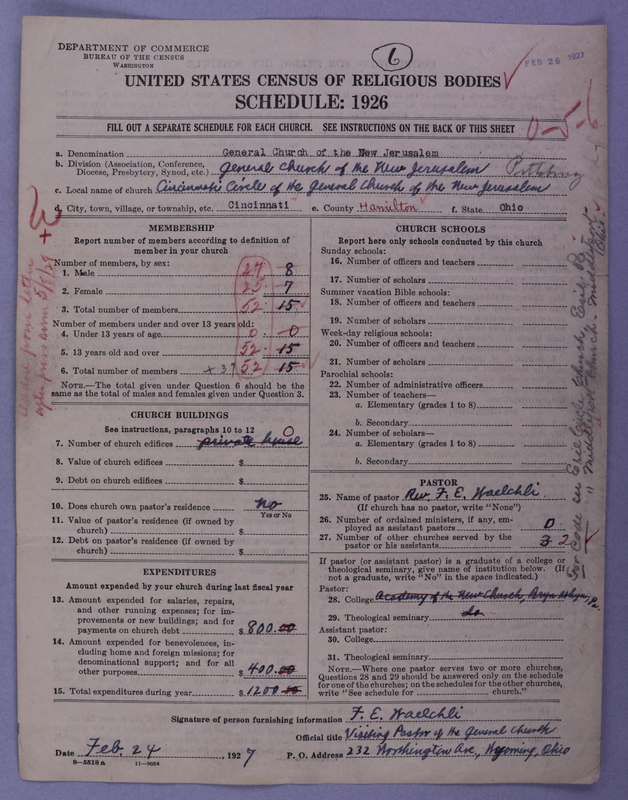 DEPARTMENT OF COMMERCE
BUREAU OF THE CENSUS
WASHINGTON
6
FEB 26 1927
UNITED STATES CENSUS OF RELIGIOUS BODIES
SCHEDULE: 1926
0-5-6
FILL OUT A SEPARATE SCHEDULE FOR EACH CHURCH. SEE INSTRUCTIONS ON THE BACK OF THIS SHEET
a. Denomination General Church of the New Jerusalem
b. Division (Association, Conference, Diocese, Presbytery, Synod, etc.) General Church of the New Jerusalem
c. Local name of church Cincinnati Circle of the General Church of the New Jerusalem
d. City, town, village, or township, etc. Cincinnati e. County Hamilton f. State Ohio
MEMBERSHIP
Report number of members according to definition of member in your church
Number of members, by sex:
1. Male 27 8
2. Female 25 7
3. Total number of members 52 15
Number of members under and over 13 years old:
4. Under 13 years of age 0 0
5. 13 years old and over 52 15
6. Total number of members +37 52 15
NOTE.—The total given under Question 6 should be the same as the total of males and females given under Question 3.
CHURCH BUILDINGS
See instructions, paragraphs 10 to 12
7. Number of church edifices private house 0
8. Value of church edifices $
9. Debt on church edifices $
10. Does church own pastor's residence No
Yes or No
11. Value of pastor's residence (if owned by church) $
12. Debt on pastor's residence (if owned by church) $
EXPENDITURES
Amount expended by your church during last fiscal year
13. Amount expended for salaries, repairs, and other running expenses; for improvements or new buildings; and for payments on church debt $ 800.00
14. Amount expended for benevolences, including home and foreign missions; for denominational support; and for all other purposes $ 400.00
15. Total expenditures during year $ 1200.00
CHURCH SCHOOLS
Report here only schools conducted by this church
Sunday schools:
16. Number of officers and teachers
17. Number of scholars
Summer vacation Bible schools:
18. Number of officers and teachers
19. Number of scholars
Week-day religious schools:
20. Number of officers and teachers
21. Number of scholars
Parochial schools:
22. Number of administrative officers
23. Number of teachers—
a. Elementary (grades 1 to 8)
b. Secondary
24. Number of scholars—
a. Elementary (grades 1 to 8)
b. Secondary
PASTOR
25. Name of pastor Rev. F. E. Waelchli
(If church has no pastor, write "None")
26. Number of ordained ministers, if any, employed as assistant pastors 0
27. Number of other churches served by the pastor or his assistants 3 2
If pastor (or assistant pastor) is a graduate of a college or theological seminary, give name of institution below. (If not a graduate, write "No" in the space indicated.)
Pastor:
28. College Academy of the New Church, Bryn Athyn, Pa.
29. Theological seminary do
Assistant pastor:
30. College
31. Theological seminary
NOTE.—Where one pastor serves two or more churches, Questions 28 and 29 should be answered only on the schedule for one of the churches; on the schedules for the other churches, write "See schedule for church."
Signature of person furnishing information F. E. Waelchli
Official title Visiting Pastor of the General Church
Date Feb. 24, 1927 P. O. Address 232 Worthington Ave., Wyoming, Ohio
8—5518 a 11—9034